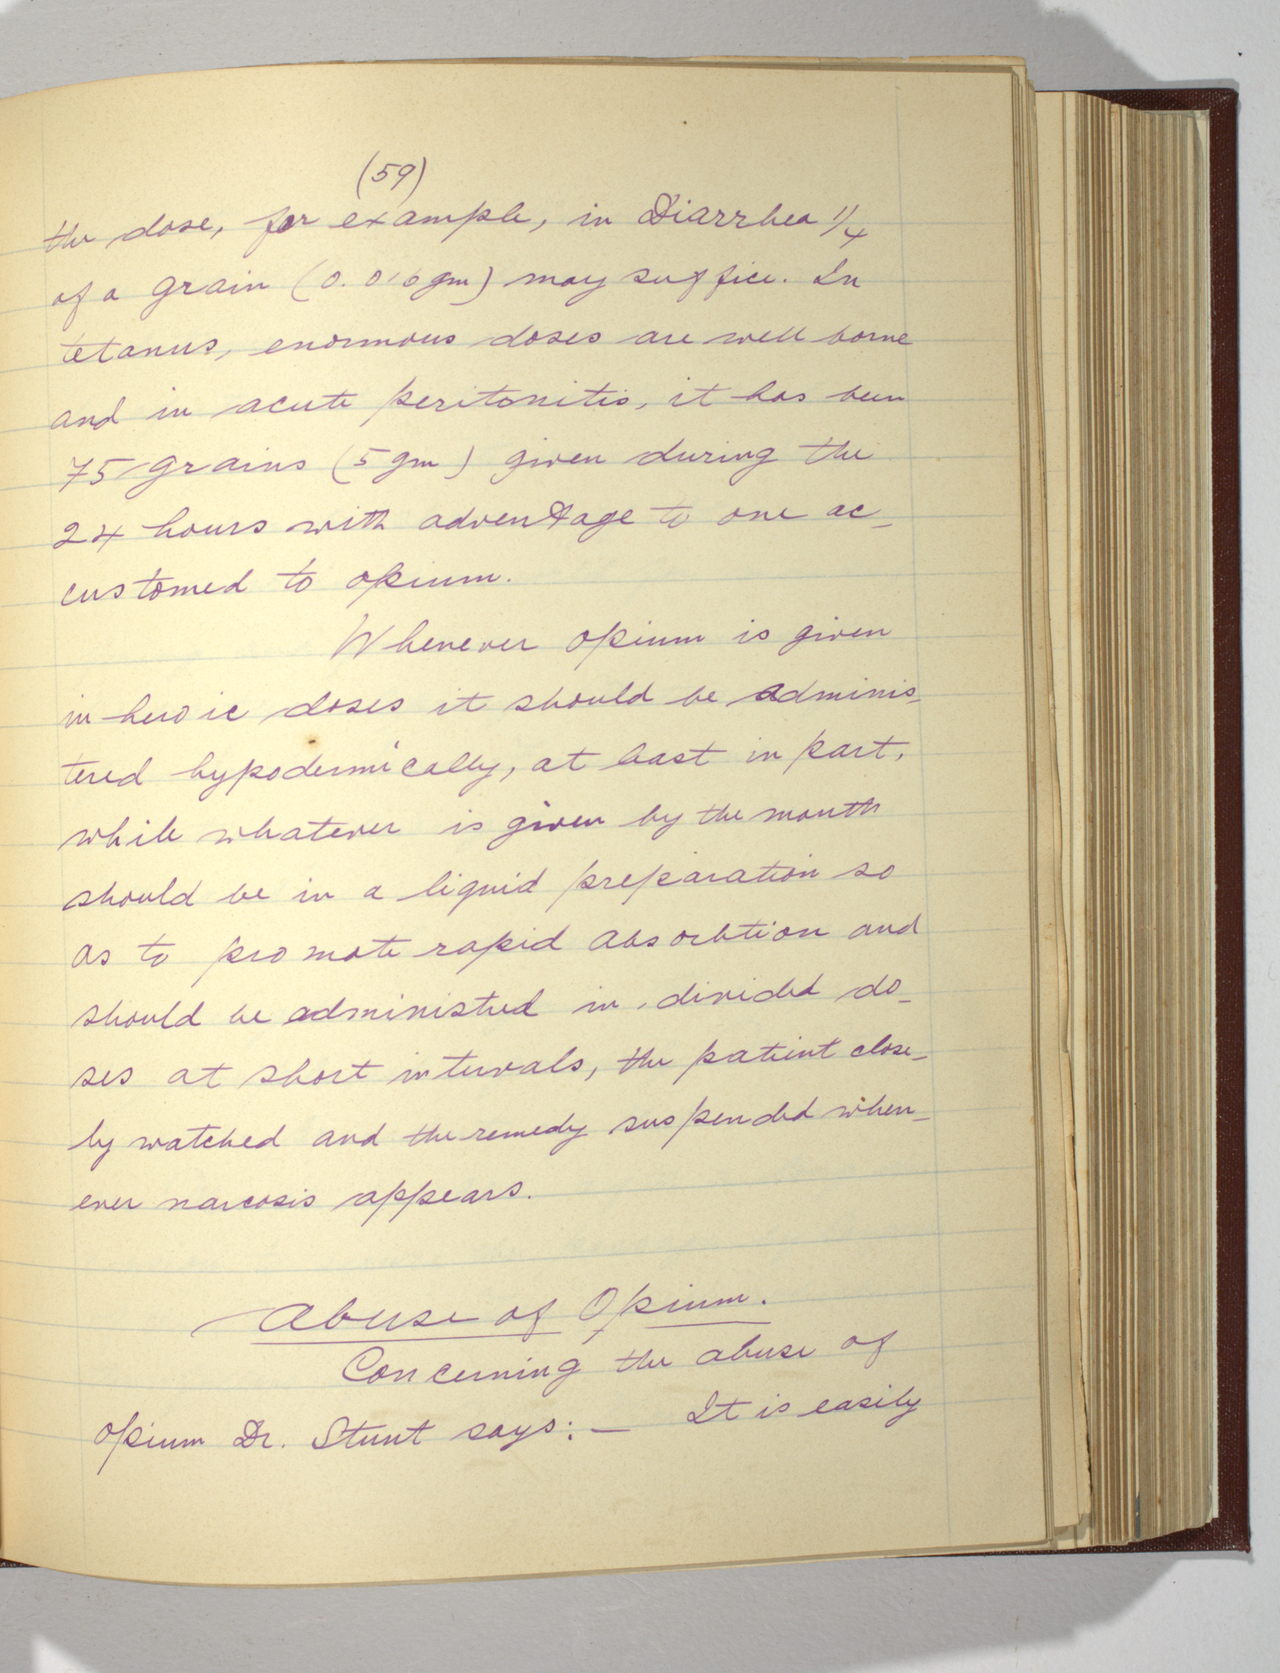 (59)
the dose, for example, in Diarrhea 1/4
of a grain (0.016 gm) may suffice. In
tetanus, enormous doses are well borne
and in acute peritonitis, it has been
75 grains (5 gm) given during the
24 hours with adventage to one ac-
customed to opium.
Whenever opium is given
in heroic doses it should be adminis-
tered hypodermically, at least in part,
while whatever is given by the mouth
should be in a liquid preparation so
as to promote rapid absorbtion and
should be administred in divided do-
ses at short intervals, the patient close-
ly watched and the remedy suspended when-
ever narcosis appears.
Abuse of Opium.
Concerning the abuse of
opium Dr. Sturt says: — It is easily